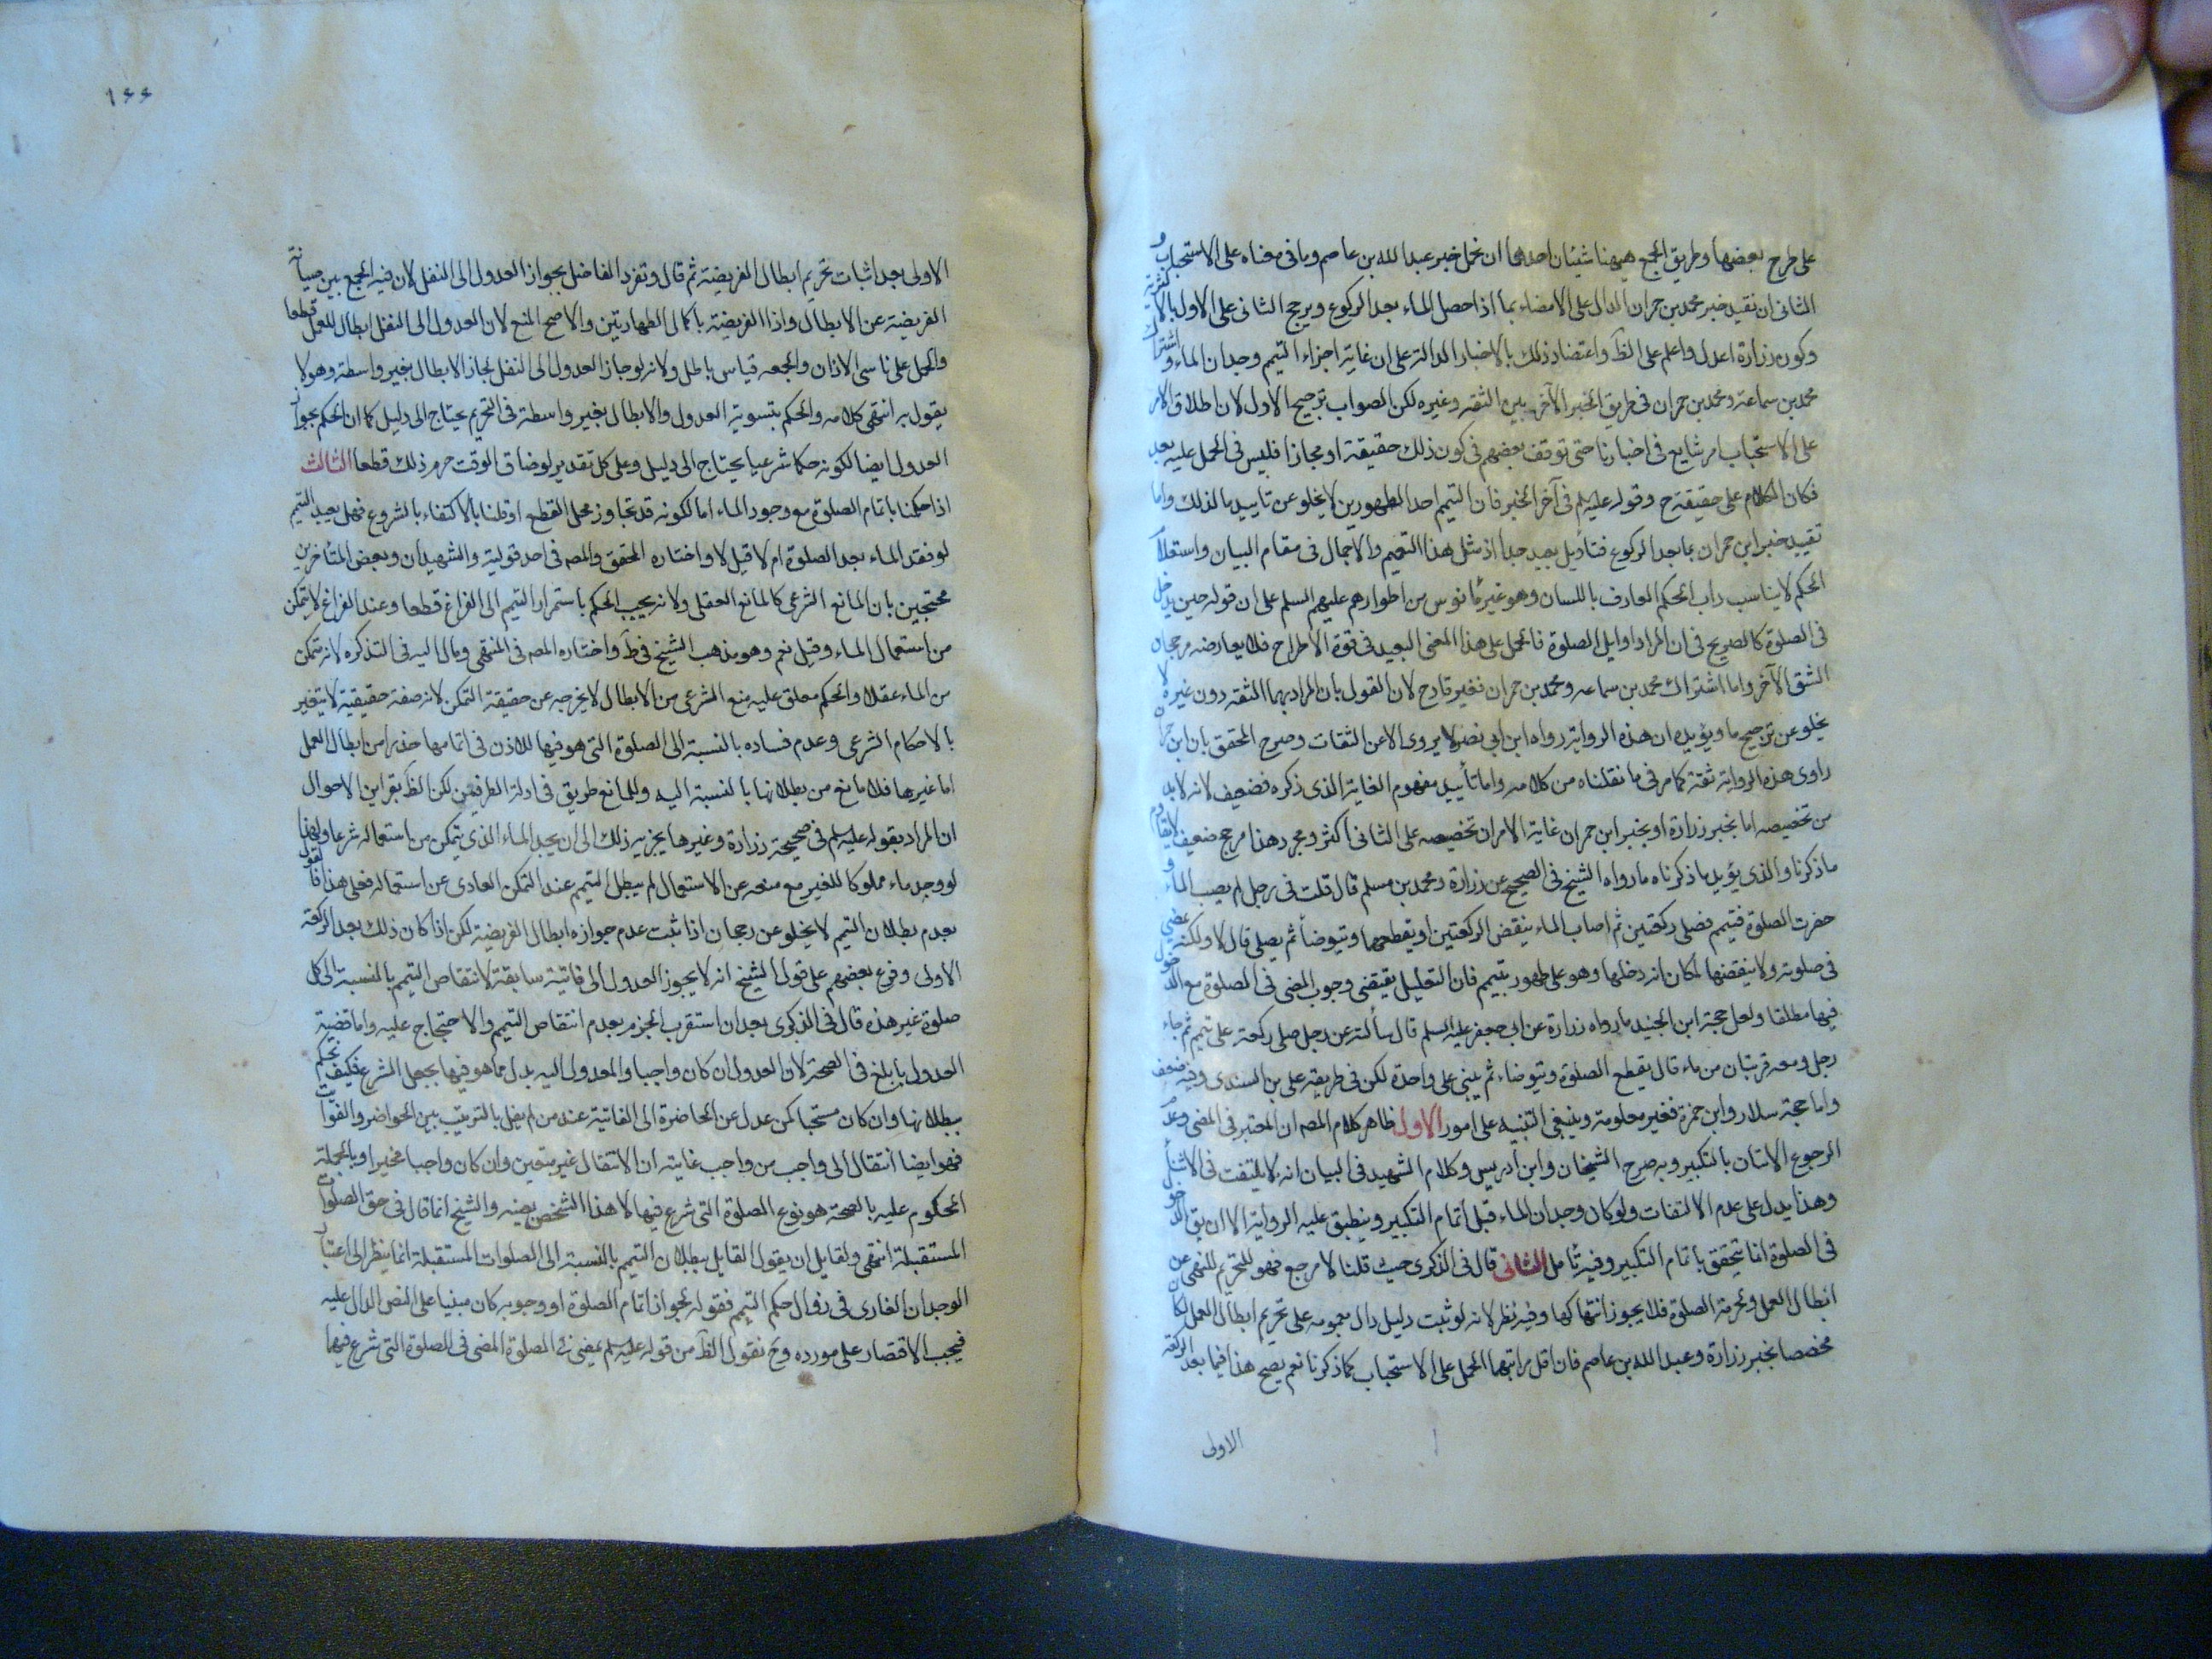 على طرح بعضها وطريق الجمع هيهنا شيئان احدهما ان نحمل خبر عبد الله بن عاصم وما فى معناه على الاستحباب و
الثانى ان نقيد خبر محمد بن حمران الدال على الامضاء بما اذا حصل الماء بعد الركوع ويرجح الثانى على الاول بالاكثرية
وكون زرارة اعدل واعلم على الظ واعتضاد ذلك بالاخبار الدالة على ان غاية اجزاء التيمم وجدان الماء واشتراك
محمد بن سماعة ومحمد بن حمران فى طريق الخبر الآخر بين الثقة وغيره لكن الصواب ترجيح الاول لان اطلاق الامر
على الاستحباب امر شايع فى اخبارنا حتى توقف بعضهم فى كون ذلك حقيقة او مجازا فليس فى الحمل عليه بعد
فكان الكلام على حقيقة ح وقوله عليه السلم فى آخر الخبر فان التيمم احد الطهورين لا يخلو عن تاييد ما لذلك واما
تقييد خبر ابن حمران بما بعد الركوع فتأويل بعيد جدا اذ مثل هذا التعميم والاجمال فى مقام البيان واستعلام
الحكم لا يناسب داب الحكيم العارف باللسان وهو غير مأنوس من اطوارهم عليهم السلم على ان قوله حين يدخل
فى الصلوة كالصريح فى ان المراد اوايل الصلوة فالحمل على هذا المعنى البعيد فى قوة الاطراح فلا يعارضه مرجحات
الشق الآخر واما اشتراك محمد بن سماعه ومحمد بن حمران فغير قادح لان القول بان المراد بهما الثقة دون غيره لا
يخلو عن ترجيح ما ويؤيده ان هذه الرواية رواه ابن ابى نصر ولا يروى الا عن الثقات وصرح المحقق بان ابن حمران
راوى هذه الرواية ثقة كما مر فى ما نقلناه من كلامه واما تأييد مفهوم الغاية الذى ذكره فضعيف لانه لا بد
من تخصيصه اما بخبر زرارة او بخبر ابن حمران غاية الامر ان تخصيصه على الثانى اكثر ومجرد هذا مرجح ضعيف لا يقاوم
ما ذكرنا والذى يؤيد ما ذكرناه ما رواه الشيخ فى الصحيح عن زرارة ومحمد بن مسلم قال قلت فى رجل لم يصب الماء و
حضرت الصلوة فتيمم فصلى ركعتين ثم اصاب الماء ينقض الركعتين او يقطعهما ويتوضأ ثم يصلى قال لا ولكنه يمضى
فى صلوته ولا ينقضها لمكان انه دخلها وهو على طهور بتيمم فان التعليل يقتضى وجوب المضى فى الصلوة مع الدخول
فيها مطلقا ولعل حجة ابن الجنيد ما رواه زرارة عن ابى جعفر عليه السلم قال سألته عن رجل صلى ركعة على تيمم ثم جاء
رجل ومعه قربتان من ماء قال يقطع الصلوة ويتوضاء ثم يبنى على واحدة لكن فى طريقه على بن السندى وفيه ضعف
واما حجة سلار وابن حمزة فغير معلومة وينبغى التنبيه على امور الاول ظاهر كلام المصه ان المعتبر فى المضى وعدم
الرجوع الاتيان بالتكبير وبه صرح الشيخان وابن ادريس وكلام الشهيد فى البيان انه لا يلتفت فى الاثناء
وهذا يدل على عدم الالتفات ولو كان وجدان الماء قبل اتمام التكبير وينطبق عليه الرواية الا ان يق الدخول
فى الصلوة انما يتحقق باتمام التكبير وفيه تأمل الثانى قال فى الذكرى حيث قلنا لا مرجع فهو للتحريم للنهى عن
ابطال العمل ولحرمة الصلوة فلا يجوز انتهاكها وفيه نظر لانه لو ثبت دليل دال بعمومه على تحريم ابطال العمل لكان
مخصصا بخبر زرارة وعبد الله بن عاصم فان اقل مراتبهما الحمل على الاستحباب كما ذكرنا نعم يصح هذا فيما بعد الركعة
الاولى
١٤٤
الاولى بعد اثبات تحريم ابطال الفريضة ثم قال وتفرد الفاضل بجواز العدول الى النفل لان فيه الجمع بين صيانة
الفريضة عن الابطال واذا الفريضة باكمال الطهارتين والاصح المنع لان العدول الى النفل ابطال للعمل قطعا
والحمل على ناسى الاذان والجمعه قياس باطل ولانه لو جاز العدول الى النفل لجاز الابطال بغير واسطة وهو لا
يقول به انتهى كلامه والحكم بتسوية العدول والابطال بغير واسطة فى التحريم يحتاج الى دليل كما ان الحكم بجواز
العدول ايضا لكونه حكما شرعيا يحتاج الى دليل وعلى كل تقدير لو ضاق الوقت حرم ذلك قطعا الثالث
اذا حكمنا باتمام الصلوة مع وجود الماء اما لكونه قد تجاوز محل القطع او قلنا بالاكتفاء بالشروع فهل يعيد التيمم
لو فقد الماء بعد الصلوة ام لا قيل لا واختاره المحقق والمصه فى احد قوليه والشهيدان وبعض المتأخرين
محتجين بان المانع الشرعى كالمانع العقلى ولانه يجب الحكم باستمرار التيمم الى الفراغ قطعا وعند الفراغ لا يتمكن
من استعمال الماء وقيل نعم وهو مذهب الشيخ فى ط واختاره المصه فى المنتهى ومال اليه فى التذكره لانه تمكن
من الماء عقلا والحكم معلق عليه منع الشرعى من الابطال لا يخرجه عن حقيقة التمكن لانه صفة حقيقية لا يتغير
بالاحكام الشرعى وعدم فساده بالنسبة الى الصلوة التى هو فيها للاذن فى اتمامها حذرا من ابطال العمل
اما غيرها فلا مانع من بطلانها بالنسبة اليه وللمانع طريق فى ادلة الطرفين لكن الظ بقراين الاحوال
ان المراد بقوله عليه السلم فى صحيحة زرارة وغيرها يجزيه ذلك الى ان يجد الماء الذى يتمكن من استعماله شرعا ولهذا
لو وجد ماء مملوكا للغير مع منعه عن الاستعمال لم يبطل التيمم عند التمكن العادى عن استعماله فعلى هذا فالقول
بعدم بطلان التيمم لا يخلو عن رجحان اذا ثبت عدم جوازه ابطال الفريضة لكن اذا كان ذلك بعد الركعة
الاولى وفرع بعضهم على قول الشيخ انه لا يجوز العدول الى فائتة سابقة لانتقاض التيمم بالنسبة الى كل
صلوة غير هذه قال فى الذكرى بعد ان استقرب الجزم بعدم انتقاض التيمم والاحتجاج عليه واما قضية
العدول فابلغ فى الصحة لان العدول ان كان واجبا والمعدول اليه بدل مما هو فيها بجعل الشرع فكيف نحكم
ببطلانها وان كان مستحبا كمن عدل عن الحاضرة الى الفائتة عند من لم يقل بالترتيب بين الحواضر والفوائت
فهو ايضا انتقال الى واجب من واجب غايته ان الانتقال غير متعين وان كان واجبا مخيرا وبالجملة
المحكوم عليه بالصحة هو نوع الصلوة التى شرع فيها لا هذا الشخص بعينه والشيخ انما قال فى حق الصلوات
المستقبلة انتهى ولقايل ان يقول القايل ببطلان التيمم بالنسبة الى الصلوات المستقبلة انما ينظر الى اعتبار
الوجدان العارى فى زوال حكم التيمم فقوله بجواز اتمام الصلوة او وجوبه كان مبنيا على النص الدال عليه
فيجب الاقتصار على مورده وح نقول الظ من قوله عليه السلم يمضى فى الصلوة المضى فى الصلوة التى شرع فيها